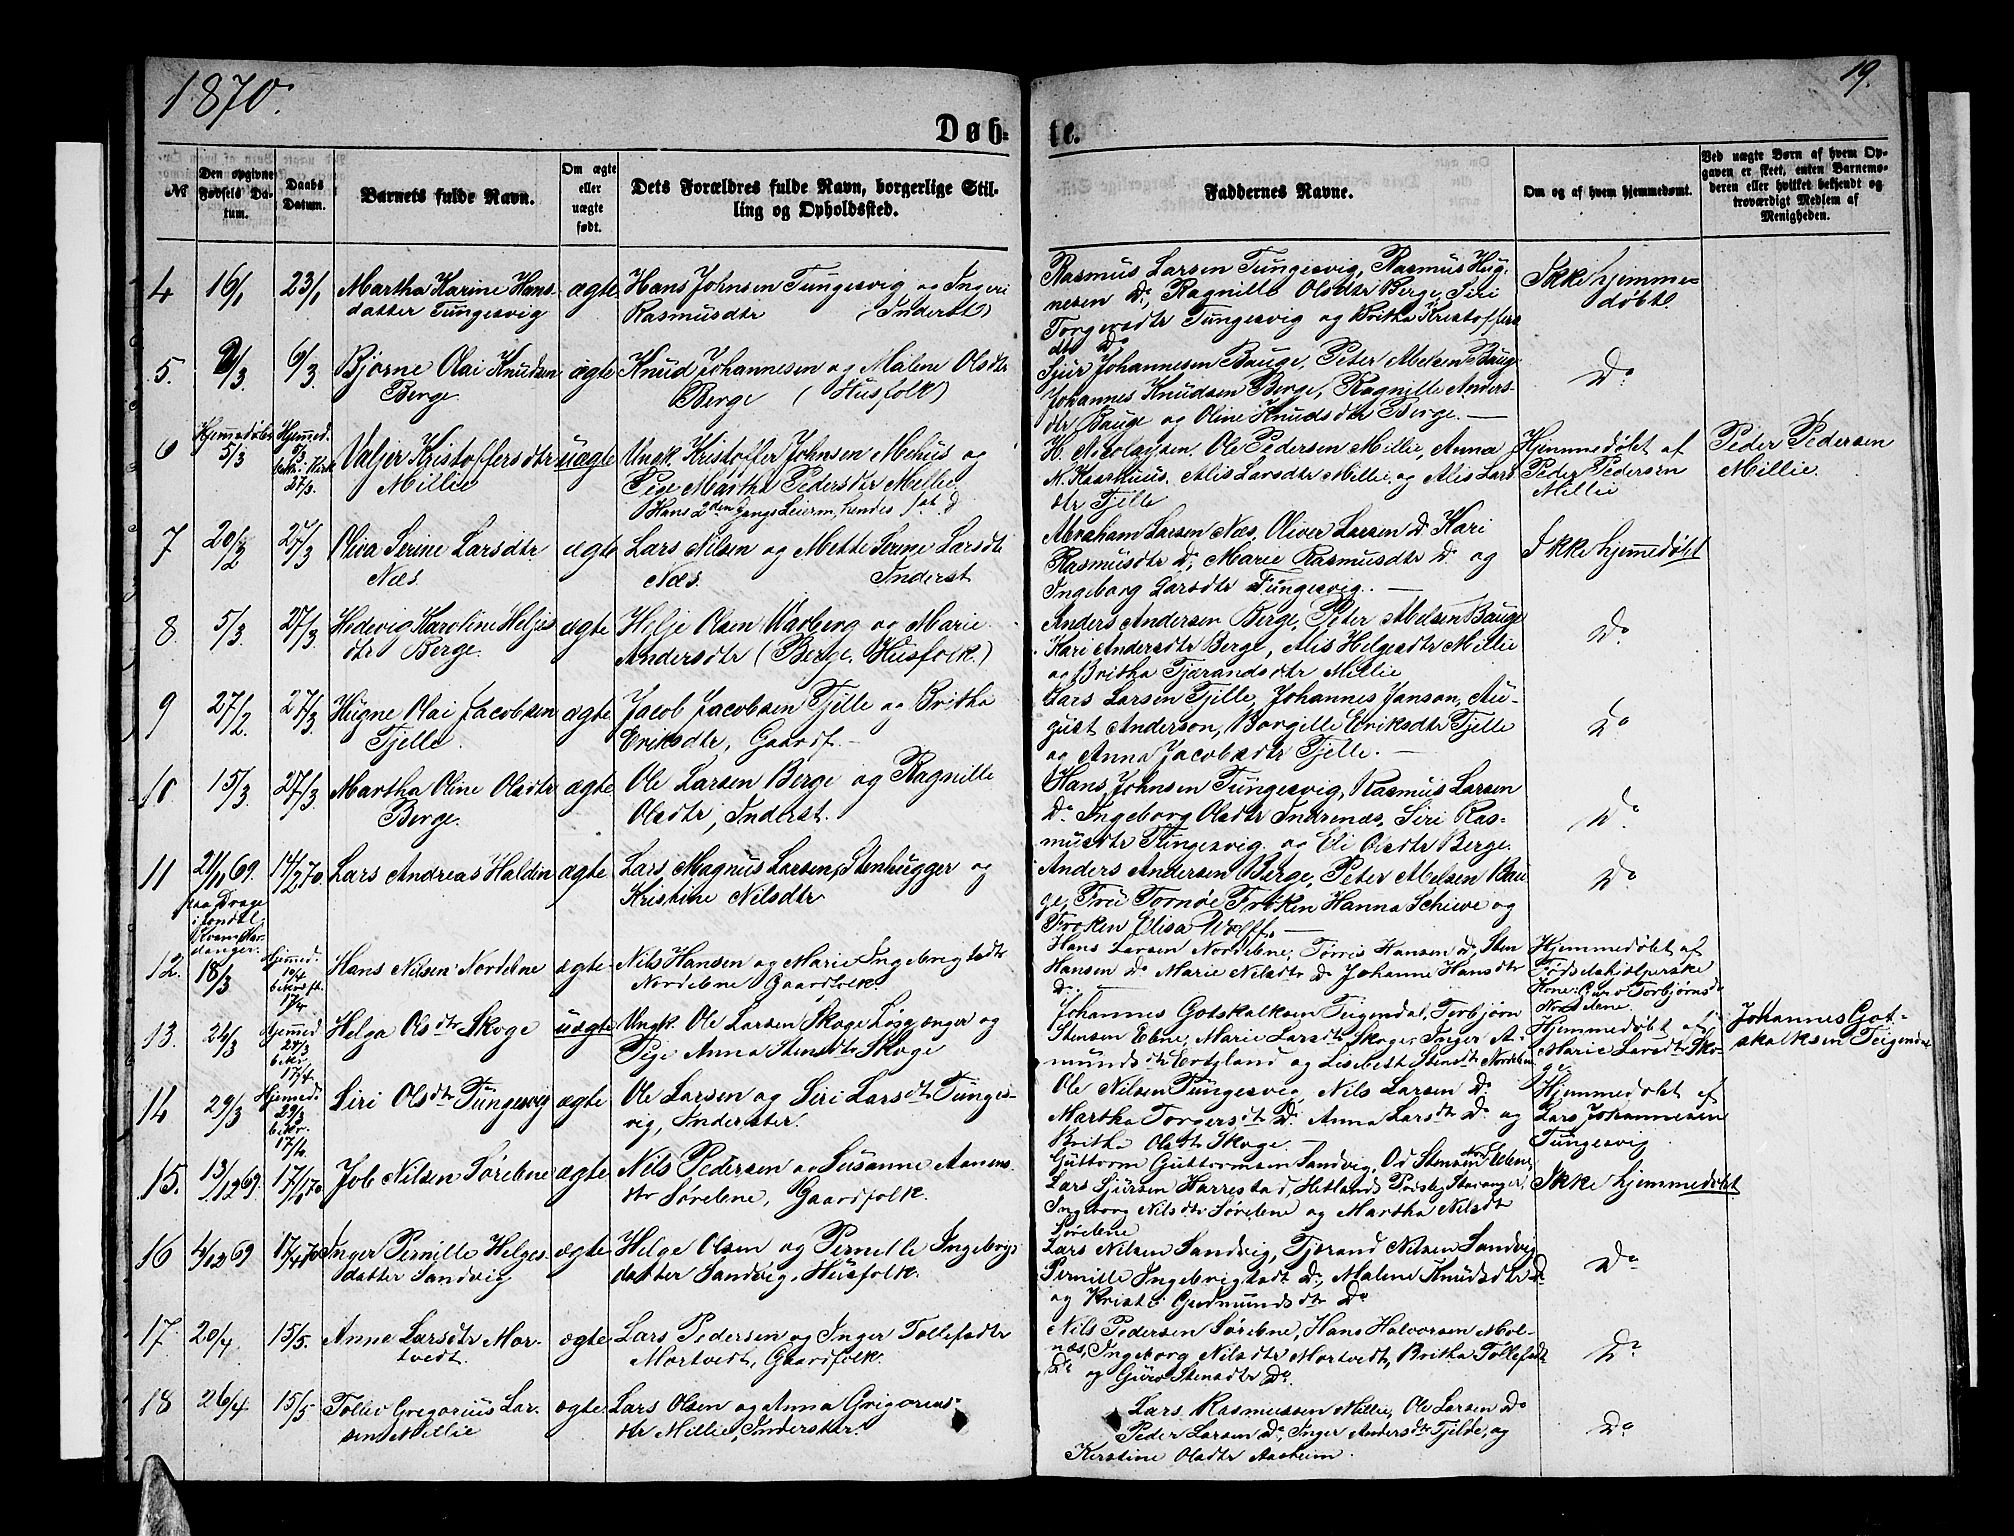 1870.
19.
Døb-
te.
№
Den opgivne Fødsels Datum.
Daabs Datum.
Barnets fulde Navn.
Om ægte eller uægte født.
Dets Forældres fulde Navn, borgerlige Stilling og Opholdssted.
Faddernes Navne.
Om og af hvem hjemmedømt.
Ved uægte Børn af hvem Opgaven er skeet, enten Barnemoderen eller hvilket bekjendt og troværdigt Medlem af Menigheden.
4
16/1
23/1
Martha Karine Hans
datter Tungesvig
ægte
Hans Johnsen Tungesvig og Ingeri
Rasmusdtr (Inderst)
Rasmus Larsen Tungesvig, Rasmus Hug-
nesen Do, Ragnille Olsdtr Berge, Siri
Torgersdtr Tungesvig og Britha Kristoffers
dtr Do
Ikke hjemme-
døbt.
5.
2/3
6/3
Bjørne Olai Knudsen
Berge
ægte
Knud Johannesen og Malene Olsdtr
Berge (Husfolk)
Sjur Johannesen Bauge, Peter Abelsen Bauge
Johannes Knudsen Berge, Ragnille Anders-
dtr Bauge og Oline Knudsdtr Berge.
Do
6
Hjemmedøbt
5/3
Hjemmed.
27/3.
Valjer Kristoffersdtr
Millie
uægte
Ungk. Kristoffer Johnsen Mehus og
Pige Martha Pedersdtr Millie
(Hans 2den Gangs Leierm, hendes 1st d
H. Nicolaysen. Ole Pedersen Millie, Anna
N. Kaashuus. Alis Larsdtr Millie, og Alis Lars
dtr Fjelle
Hjemmedøbt af
Peder Pedersen
Millie
Peder Pedersen
Millie.
7
20/2
27/3
Oliva Serine Larsdtr
Næs.
ægte
Lars Nilsen og Mette Serine Larsdtr
Næs. Inderst
Abraham Larsen Næs, Oliver Larsen Do Kari
Rasmusdtr Do, Marie Rasmusdtr Do og
Ingeborg Larsdtr Tungesvig.
Ikke hjemmedøbt
8.
5/3
27/3
Hedevig Karoline Heljes
dtr Berge.
ægte
Helje Olsen Warberg og Marie
Andersdtr (Berge. Husfolk.)
Anders Andersen Berge, Peter Abelsen Bauge
Kari Andersdtr Berge, Alis Helgesdtr Millie
og Britha Tjerandsdtr Millie
Do
9
27/2.
27/3.
Hugne Olai Jacobsen
Fjelle
ægte
Jacob Jacobsen Fjelle og Britha
Eriksdtr, Gaardf.
Lars Larsen Fjelle, Johannes Janson, Au-
gust Anderson, Borgille Eriksdtr Fjelle
og Anna Jacobsdtr Fjelle.
Do
10
15/3
27/3
Martha Oline Olsdtr
Berge.
ægte
Ole Larsen Berge og Ragnille
Olsdtr, Inderst.
Hans Johnsen Tungesvig, Rasmus Larsen
Do Ingeborg Olsdtr Indrenæs, Siri Ras-
musdtr Tungesvig og Eli Olsdtr Berge.
Do
11
21/11 69.
paa Drage
14/2 70.
Lars Andreas Haldin
ægte
Lars Magnus Larsen, Stenhugger og
Kristine Nilsdtr
Anders Andersen Berge, Peter Abelsen Bau
ge, Fru Tornøe Frøken Hanna Schiwe og
Frøken Elisa Wolff.
Do
12.
18/3
Hjemmed.
17/4
Hans Nilsen Nordebne
ægte
Nils Hansen og Marie Ingebrigtsdtr
Nordebne Gaardfolk
Hans Larsen Nordebne, Tørris Hansen Do, Sten
Hansen Do Marie Nilsdtr Do Johanne Hansdtr
Do
Hjemmedøbt af
Fødselshjelperske
Kone Guro Torbjørnsd
Nordebne.
13.
24/3
Hjemmed
24/3
17/4.
Helga Olsdtr Skoge
uægte
Ungk. Ole Larsen Skoge Løsgjænger og
Pige Anna Stensdtr Skoge
Johannes Gotskalksen Teigendal, Torbjørn
Stensen Ebne, Marie Larsdtr Skoge, Inger A-
mundsdtr Erdsland og Lisebeth Stensdtr Nordebne
Hjemmedøbt af
Marie Larsdtr Sko-
ge
Johannes Got-
skalksen Teigendal
14
29/3
Hjemmed:
29/3
17/4.
Siri Olsdtr Tungesvig
ægte
Ole Larsen og Siri Larsdtr Tunges-
vig, Inderster.
Ole Nilsen Tungesvig, Nils Larsen Do
Martha Torgersdtr Do. Anna Larsdtr Do og
Britha Olsdtr Skoge
Hjemmedøbt af
Lars Johannesen
Tungesvig
15.
13/12 69.
17/4 70
Job Nilsen Sørebne
ægte
Nils Pedersen og Susanne Aanens-
dtr Sørebne, Gaardfolk.
Guttorm Guttormsen Sandvig, Od Stensen Nordebne,
Lars Sjursen Harrestad, Hetlands Præstg Stavanger,
Ingeborg Nilsdtr Sørebne og Martha Nilsdt
Sørebne
Ikke hjemmedøbt
16
4/12 69
17/4 70
Inger Pernille Helges
datter Sandvig
ægte
Helge Olsen og Pernille Ingebrigts
datter Sandvig, Husfolk.
Lars Nilsen Sandvig, Tjerand Nilsen Sandvig
Pernille Ingebrigtsdt Do, Malene Knudsdtr Do
og Kristi Gudmundsdtr Do
Do
17.
20/4
15/5.
Anne Larsdtr Mor-
tvedt.
ægte
Lars Pedersen og Inger Tollefsdtr
Mortvedt, Gaardfolk.
Nils Pedersen Sørebne, Hans Halvorsen Mol-
næs, Ingeborg Nilsdtr Mortvedt, Britha Tollefsdt
Do og Guro Stensdtr Do.
Do
18
26/4
15/5
Tollev Gregorius Lar-
sen Millie
ægte
Lars Olsen og Anna Grigorius-
dtr Millie, Inderster.
Lars Rasmussen Millie, Ole Larsen Do
Peder Larsen Do, Inger Andersdtr Fjelde, og
Kirstine Olsdtr Aasheim.
Do